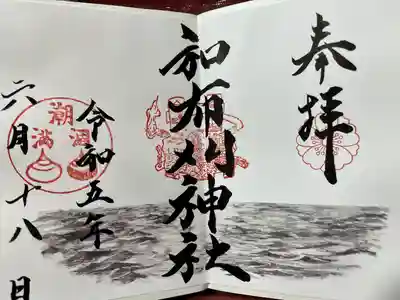 奉拝
和布刈神社
令和五年
六月十八日
満潮